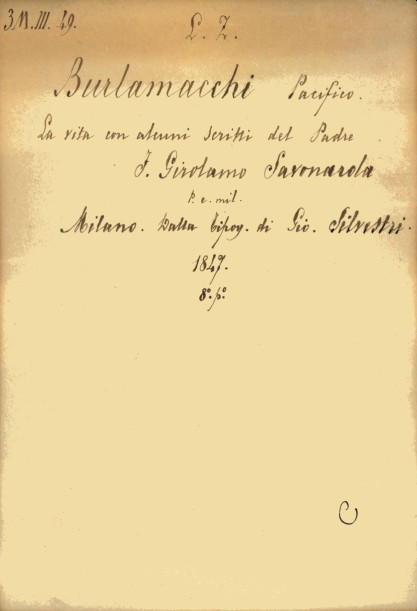 3M.III.49.
L. Z.
Burlamacchi Pacifico.
La vita con alcuni scritti del Padre
F. Girolamo Savonarola
P. e. mil.
Milano. Dalla tipog. di Gio. Silvestri.
1847.
8.º p.º
C